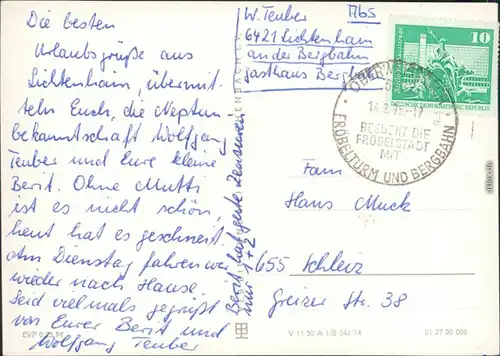 Die besten
Urlaubsgrüße aus
Lichtenhain, übermit-
teln Euch, die Neptun-
bekanntschaft Wolfgang
Teuber und Eure kleine
Berit. Ohne Mutti
ist es nicht schön,
heut hat es geschneit.
Am Dienstag fahren wir
wieder nach Hause.
Seid vielmals gegrüßt
von Eurer Berit und
Wolfgang Teuber
Berit hat gute Zensuren
nur 1+2
Abs
W. Teuber
6421 Lichtenhain
an der Bergbahn
Gasthaus Berg
10
DEUTSCHE DEMOKRATISCHE REPUBLIK
BESUCHT DIE
FRÖBELSTADT
MIT
FRÖBELTURM UND BERGBAHN
Fam
Hans Muck
655 Schleiz
Greizer Str. 38
EVP 0,25 M
V 11 50 A 1/B 540/74
01 27 00 006